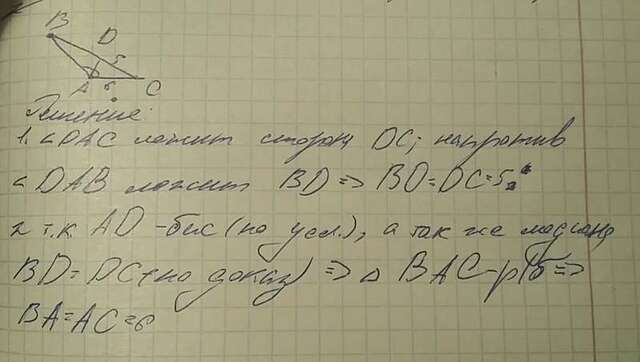 B
D
5
A 6 C
Решение:
1. ∠DAC лежит сторона DC; напротив
∠DAB лежит BD => BD=DC=5
2 т.к. AD - бис (по усл.), а так же медиана
BD=DC (по доказ) => △ BAC - р/б =>
BA=AC=6